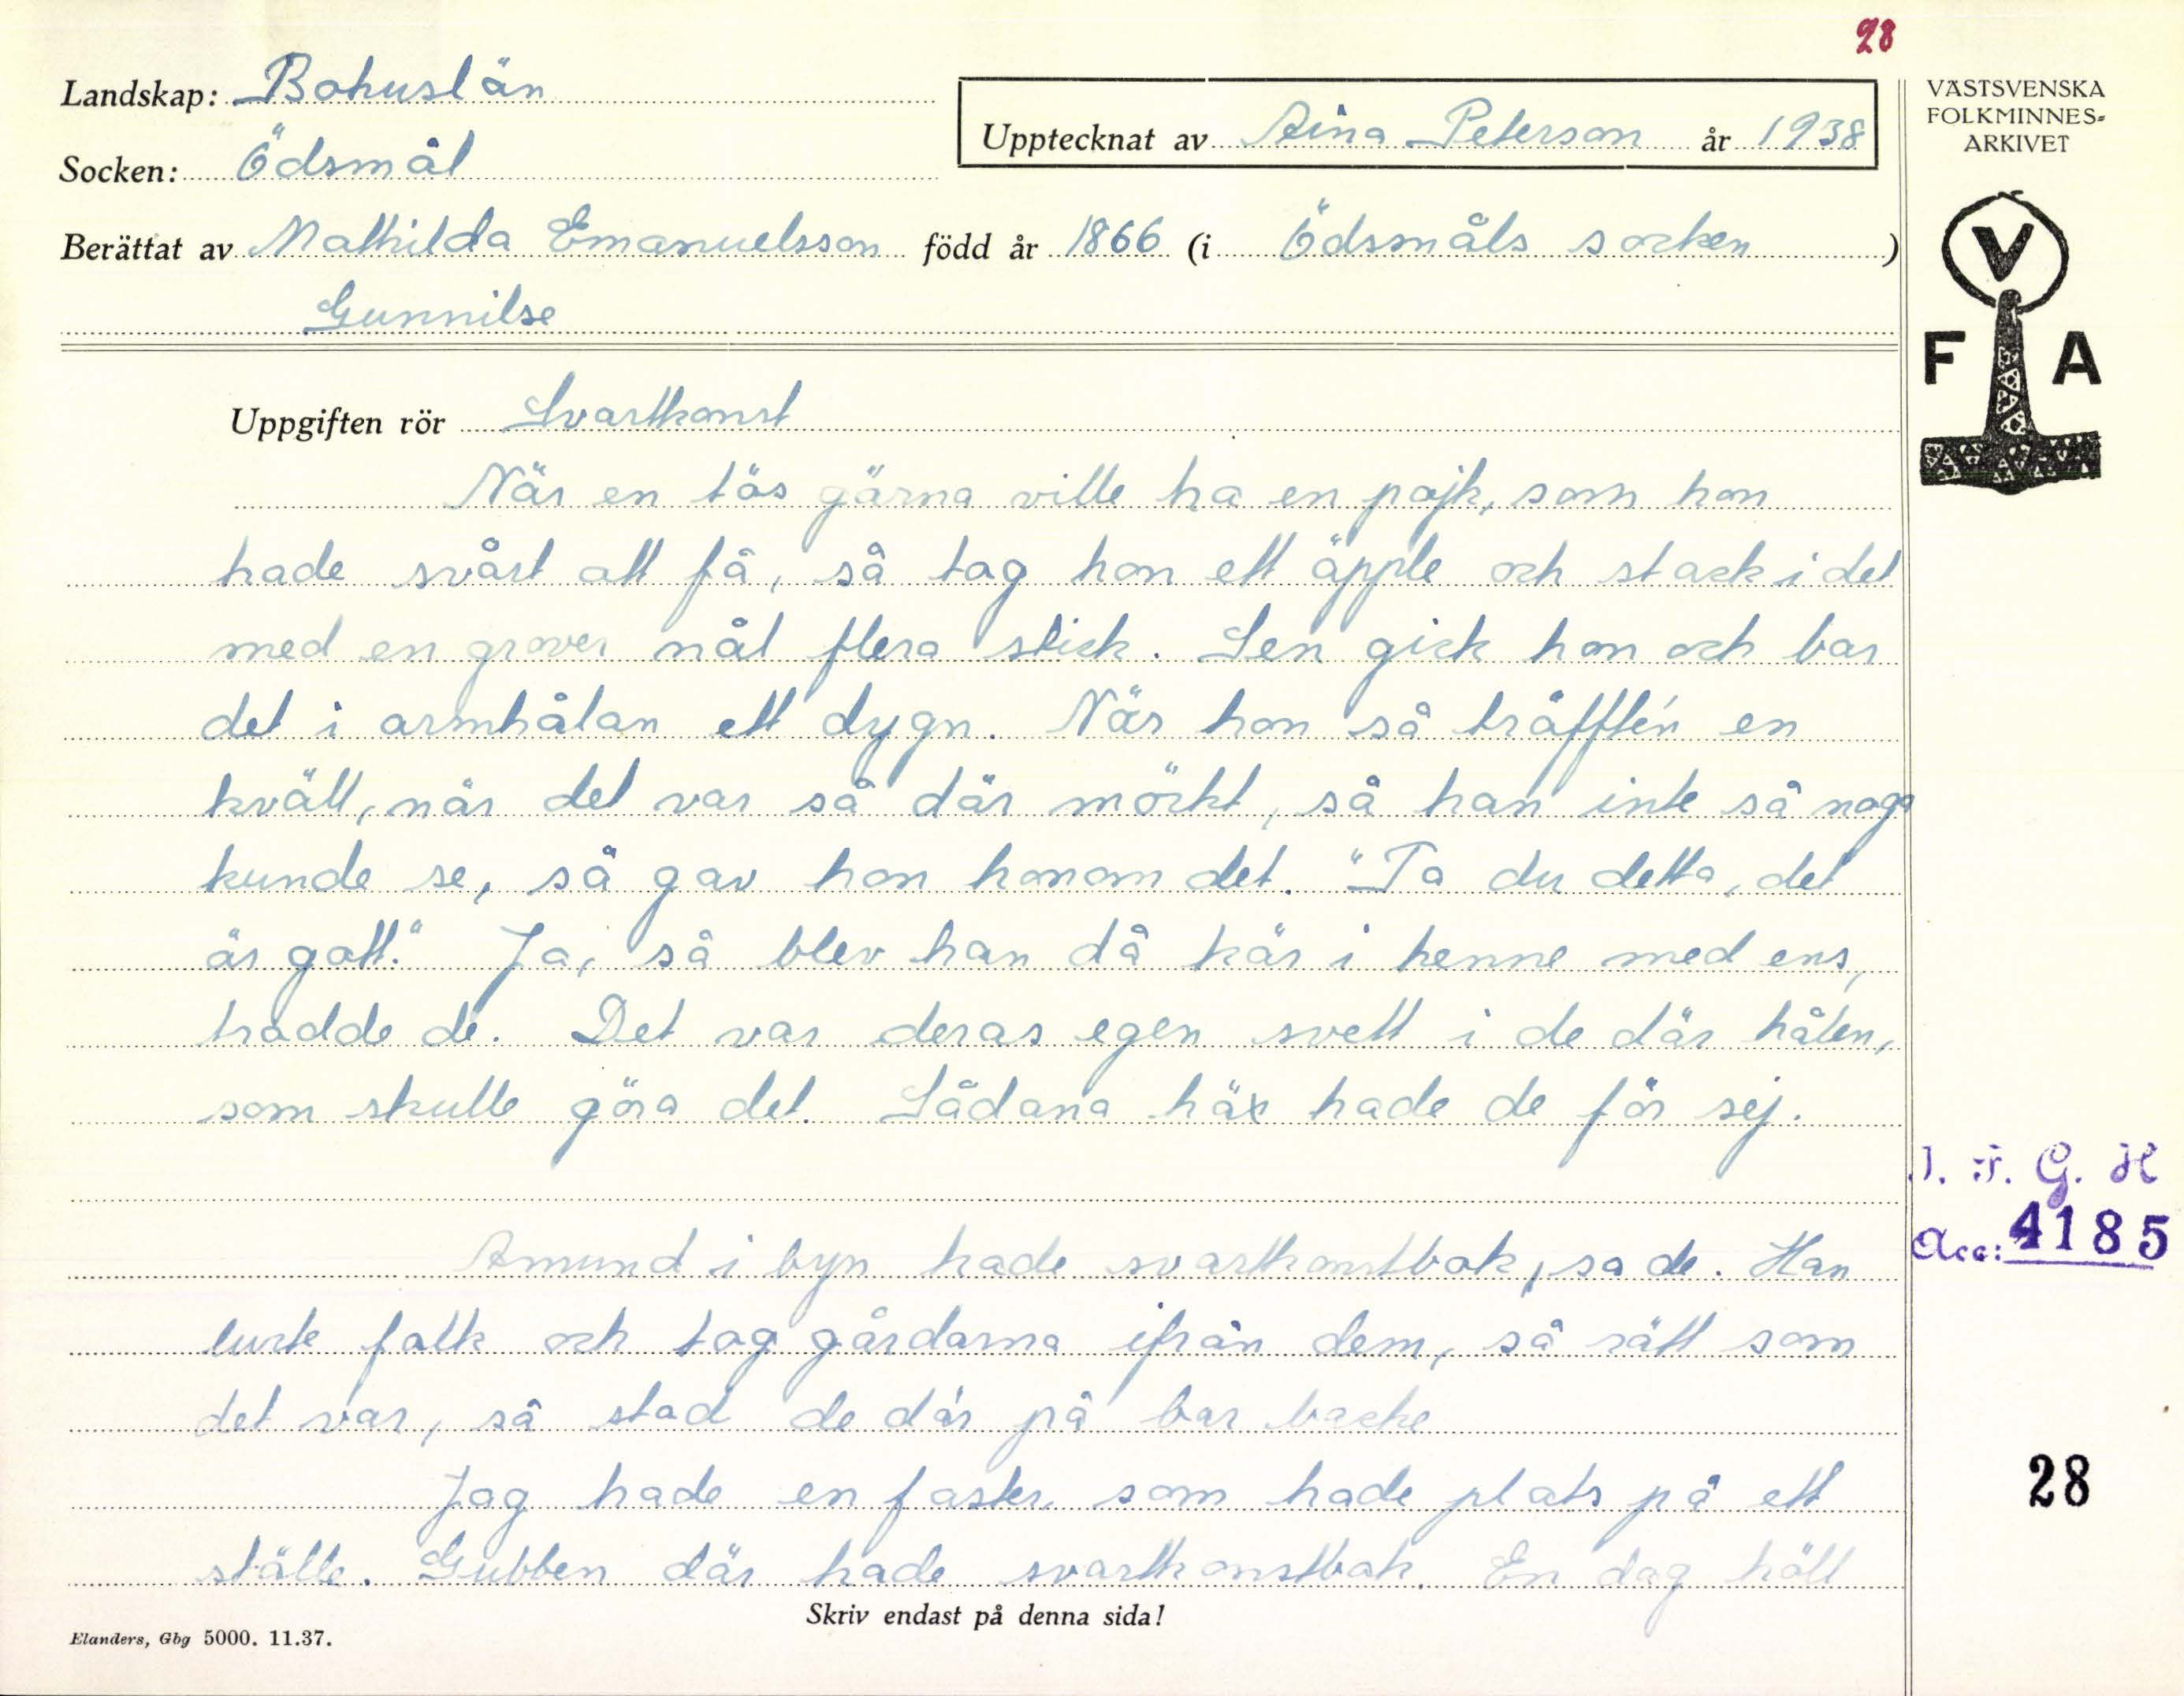 28
Landskap: Bohuslän
Upptecknat av Aina Peterson år 1938
VÄSTSVENSKA
FOLKMINNES-
ARKIVET
Socken: Ödsmål
Berättat av Mathilda Emanuelsson född år 1866 (i Ödsmåls socken)
Gunnilse
V
F A
Uppgiften rör Svartkonst
När en tös gärna ville ha en pojk, som hon
hade svårt att få, så tog hon ett äpple och stack i det
med en grover nål flera stick. Sen gick hon och bar
det i armhålan ett dygn. När hon så träfften en
kväll, när det var så där mörkt, så han inte så noga
kunde se, så gav hon honom det. "Ta du detta, det
är gott." Ja, så blev han då kär i henne med ens,
trodde de. Det var deras egen svett i de där hålen,
som skulle göra det. Sådana häx hade de för sej.
J. F. G. H
Acc: 4185
Amund i byn hade svartkonstbok, sa de. Han
lurte folk och tog gårdarna ifrån dem, så rätt som
det var, så stod de där på bar backe
Jag hade en faster, som hade plats på ett
28
ställe. Gubben där hade svartkonstbok. En dag höll
Skriv endast på denna sida!
Elanders, Gbg 5000. 11.37.